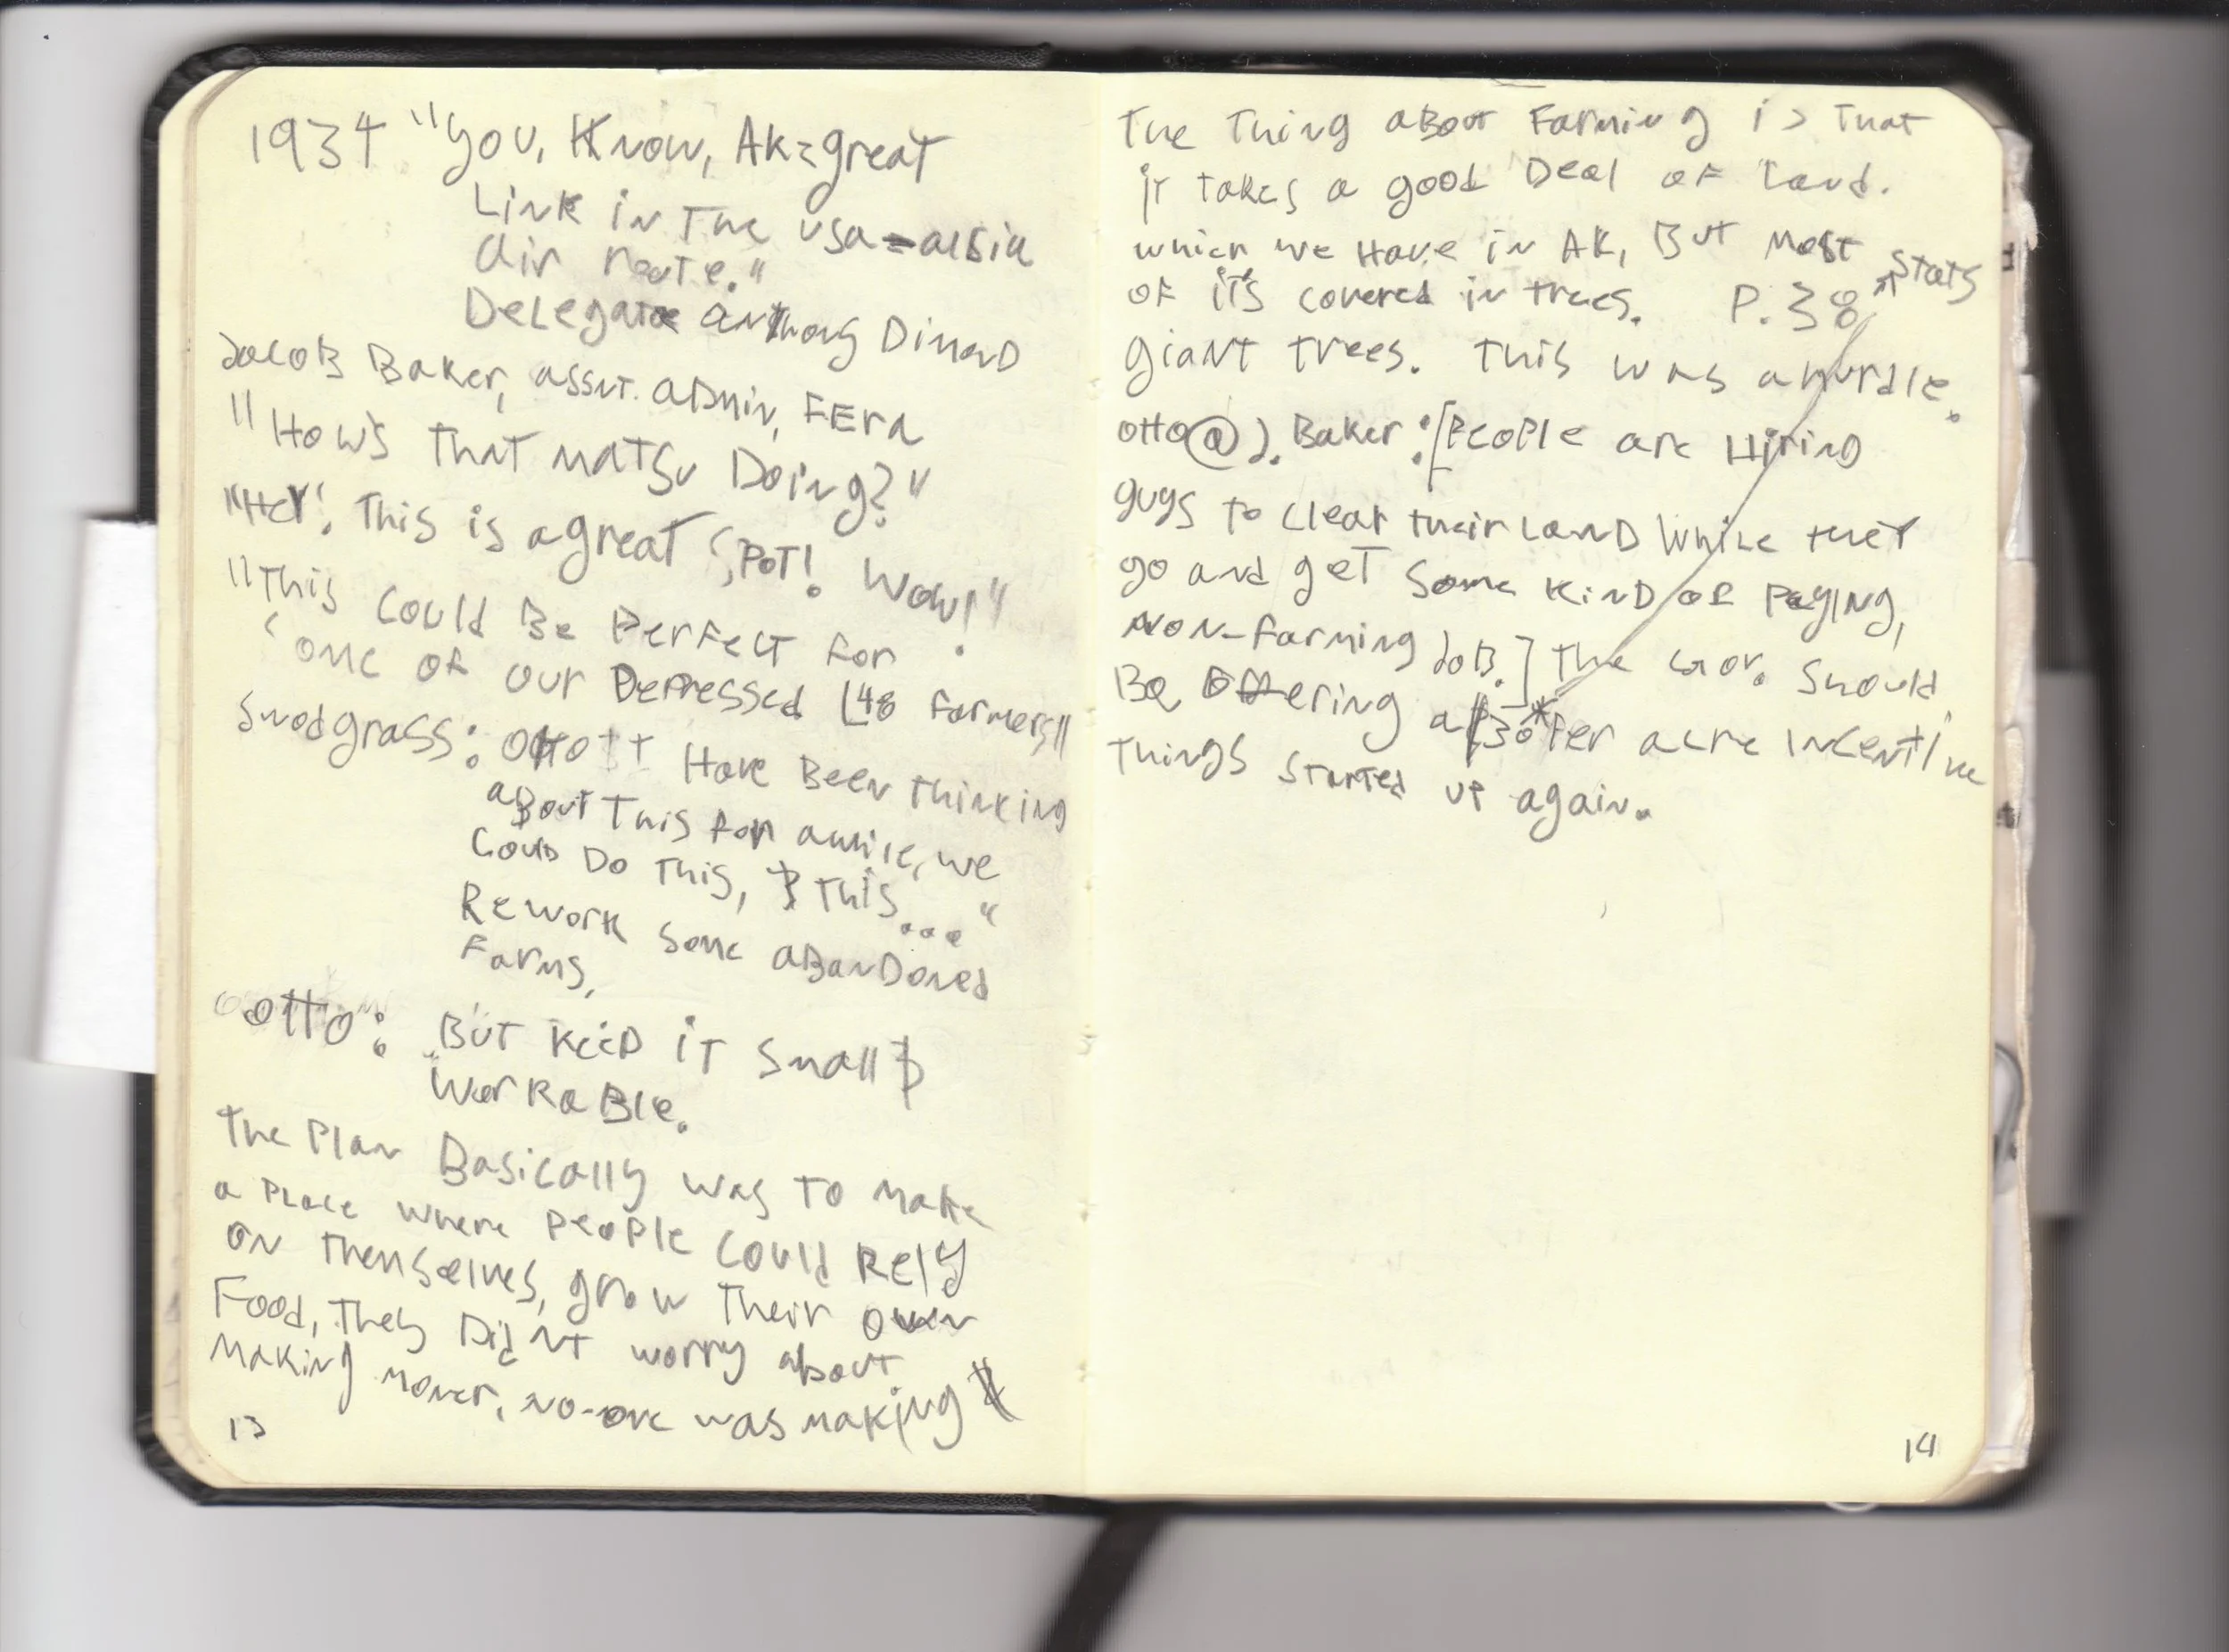 1934 "You, Know, AK=great
Link in The USA=asia
air route."
Delegate anthony Dimond
Jacob Baker, assnt. admin, FEra
"How's That Matsu Doing?"
"Hey! This is a great spot! Wow!"
"This could Be Perfect for
'one of our Depressed L48 farmers"
Snodgrass: otto & I Have Been Thinking
aBout This for awhile, we
Could Do This, & This..."
Rework some aBanDoned
Farms,
"otto": "But keep iT small &
WorkaBle.
The Plan Basically was To Make
a Place where People could Rely
on Themselves, grow Their own
Food, They Didn't worry about
Making Money, no-one was making $
13
The Thing aBout Farming is That
iT Takes a good Deal of Land.
which we Have in AK, But Most
of it's covered in trees. P.38 stats
giant Trees. This was a hurdle.
otto @ J. Baker: [People are Hiring
guys to clear their Land While they
go and get some kind of Paying,
Non-farming JoB.] The Gov. Should
Be offering a $30* Per acre incentive
Things STarTed up again.
14